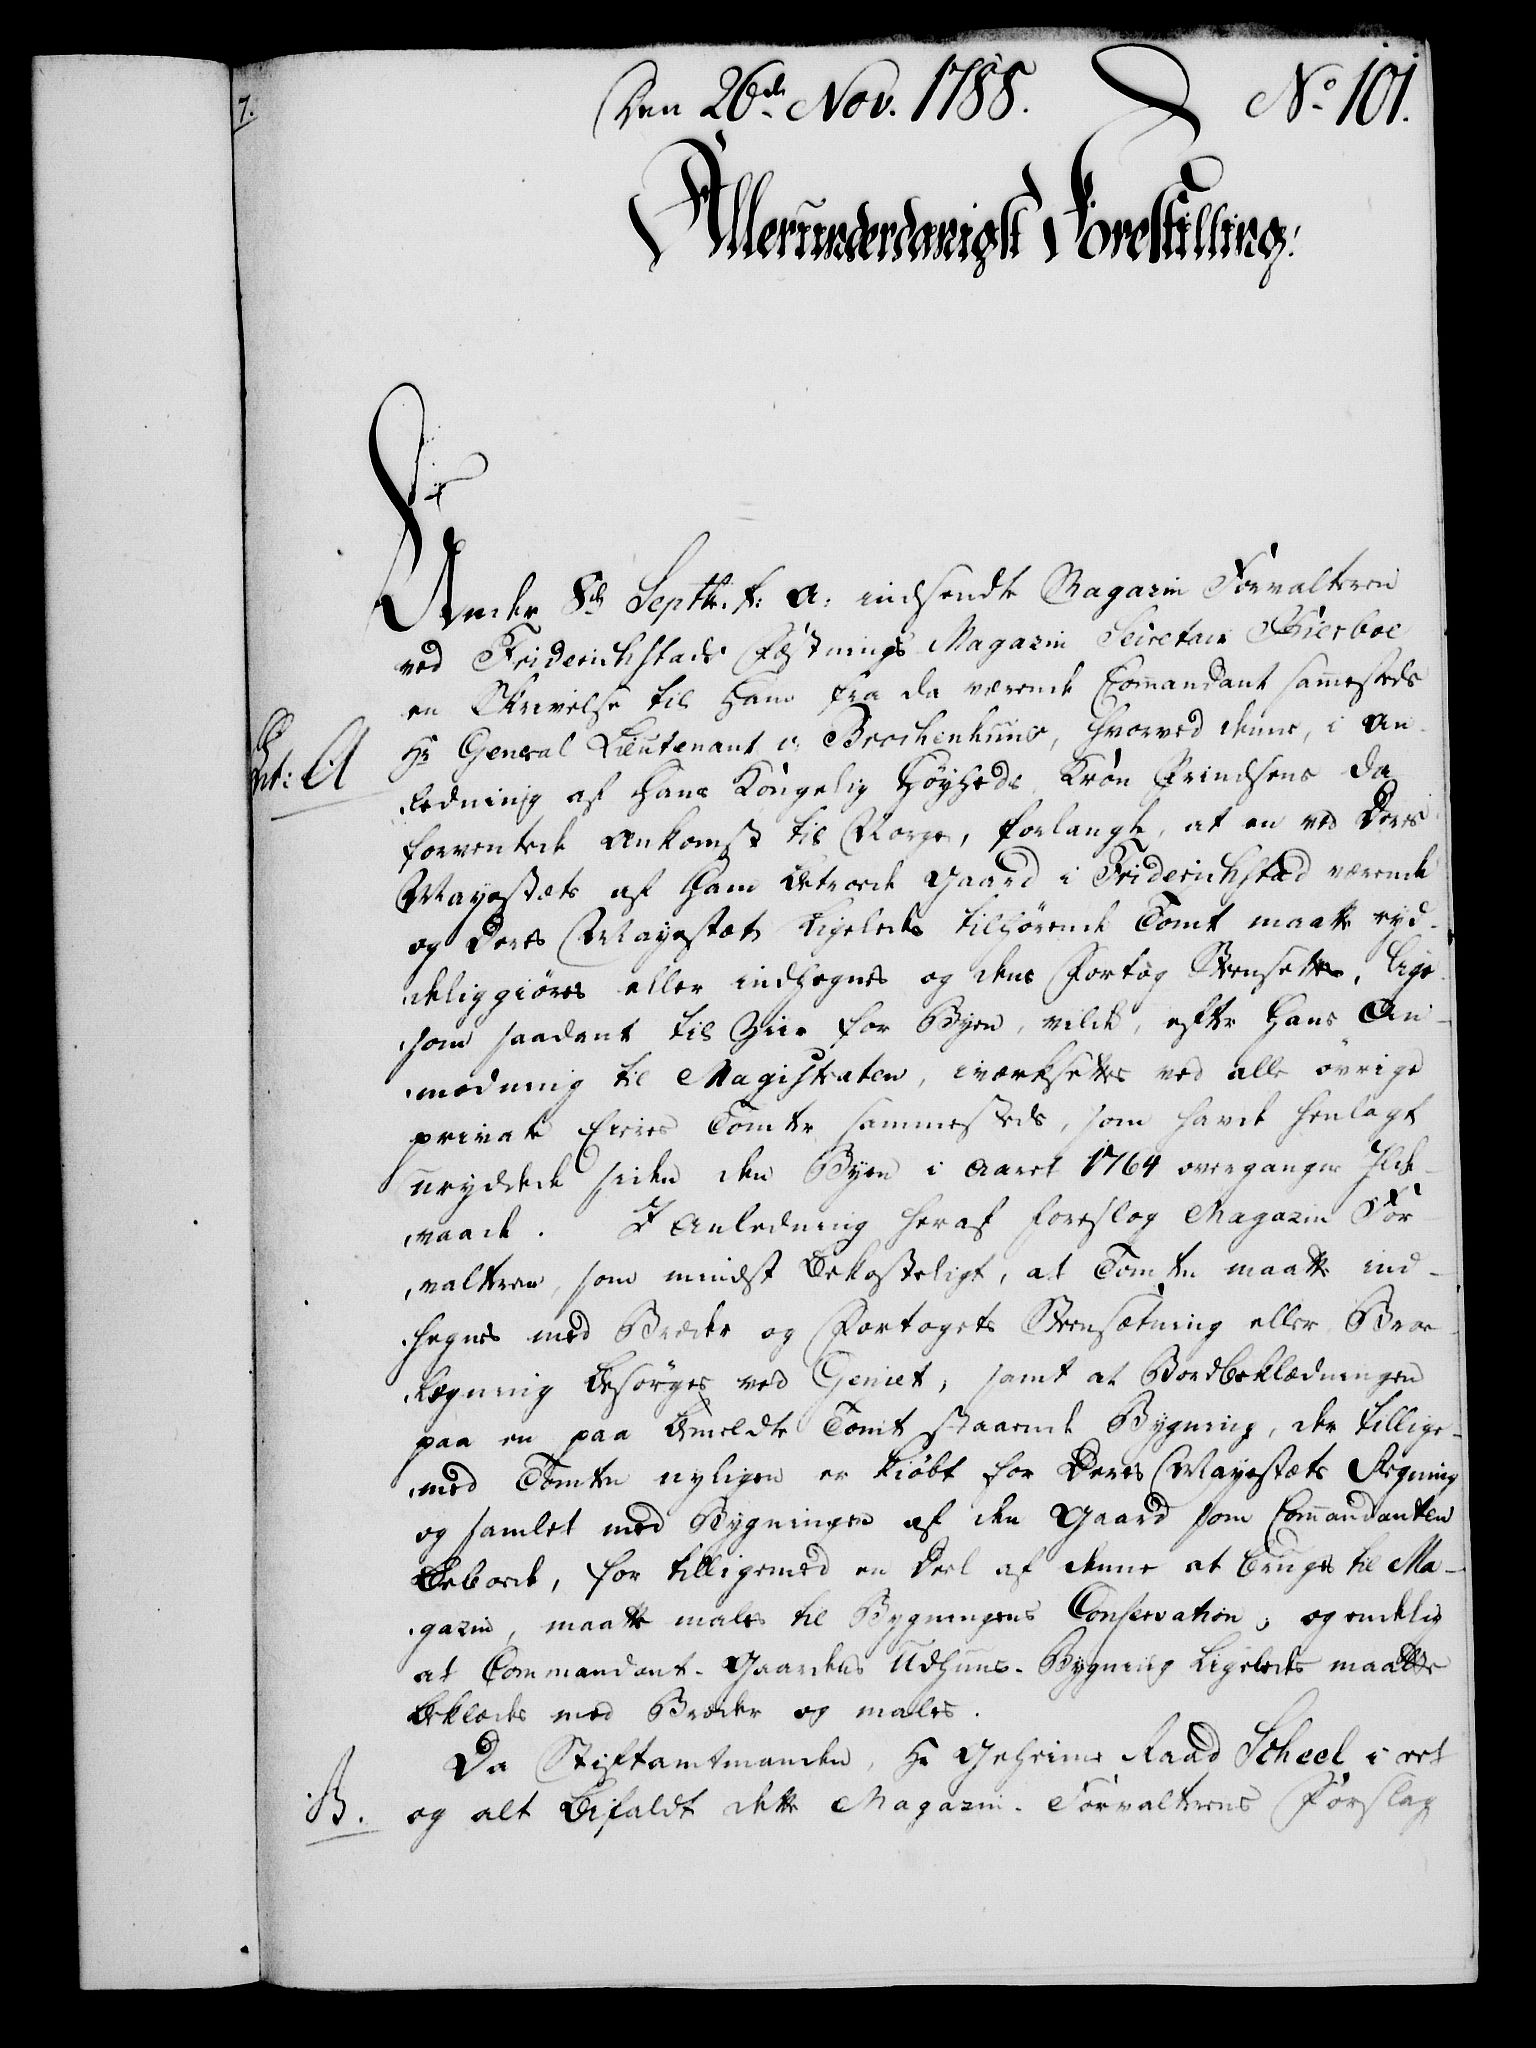 7.
Den 26de Nov. 1788. No 101.
Allerunderdanigst Forestilling!
Under 8de Septbr. f: a: indsendte Magazin Forvalteren
ved Friderichstads Fæstnings Magazin Secretair Bierboe
en Skrivelse til ham fra da værende Commandant sammesteds
Hr General Lieutenant v. Brockenhuus, hvorved denne, i An-
Lit: A
ledning af Hans Kongelig Høyheds Kron Prindsens da
forventede Ankomst til Norge, forlangte, at en ved Deres
Mayestæts af ham beboede Gaard i Friderichstad værende
og Deres Mayestæt ligeledes tilhørende Tomt maatte ryd-
deliggiøres eller indhegnes og dens Fortog Steensettes, lige-
som saadant til Ziir for Byen, vilde, efter hans An-
modning til Magistraten, iværksettes ved alle øvrige
private Eieres Tomter sammesteds, som havde henlagt
uryddede siden den Byen i Aaret 1764 overgangne Ilde-
vaade. I Anledning heraf foreslog Magazin For-
valteren, som mindst bekosteligt, at Tomten maatte ind-
hegnes med Bræder og Fortogets Steensætning eller Broe-
lægning besørges ved Geniet, samt at Bordbeklædningen
paa en paa bemeldte Tomt staaende Bygning, der tillige-
med Tomten nyligen er kiøbt for Deres Mayestæts Regning
og samlet med Bygningen af den Gaard som Commandanten
beboede, for tilligemed en Deel af denne at bruges til Ma-
gazin, maatte males til Bygningens Conservation, og endelig
at Commandant-Gaardens Udhuus-Bygning ligeledes maatte
beklædes med Bræder og males.
Da Stiftamtmanden, Hr Geheime Raad Scheel i eet
B.
og alt bifaldt dette Magazin-Forvalterens Forslag